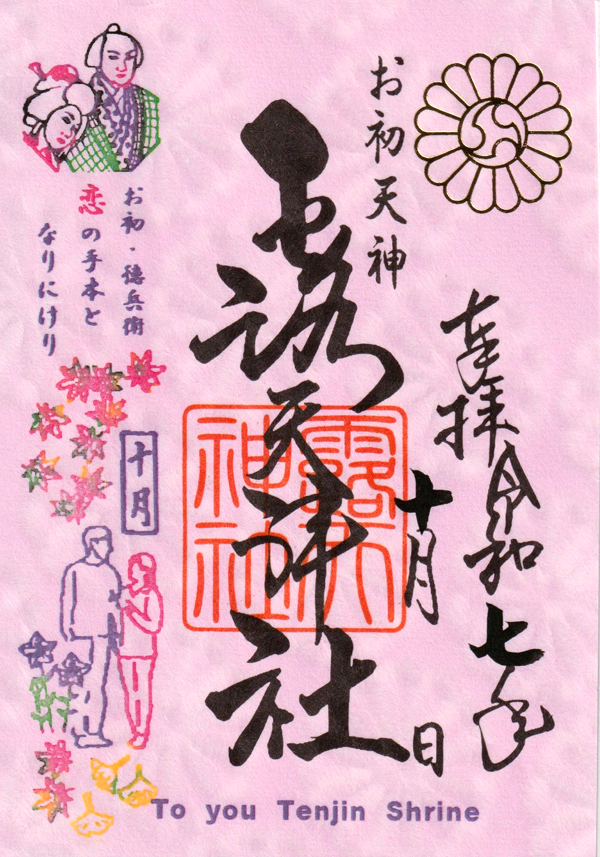 奉拝 令和七年
十月 日
お初天神
露天神社
露天神社
お初・徳兵衛
恋の手本と
なりにけり
十月
To you Tenjin Shrine